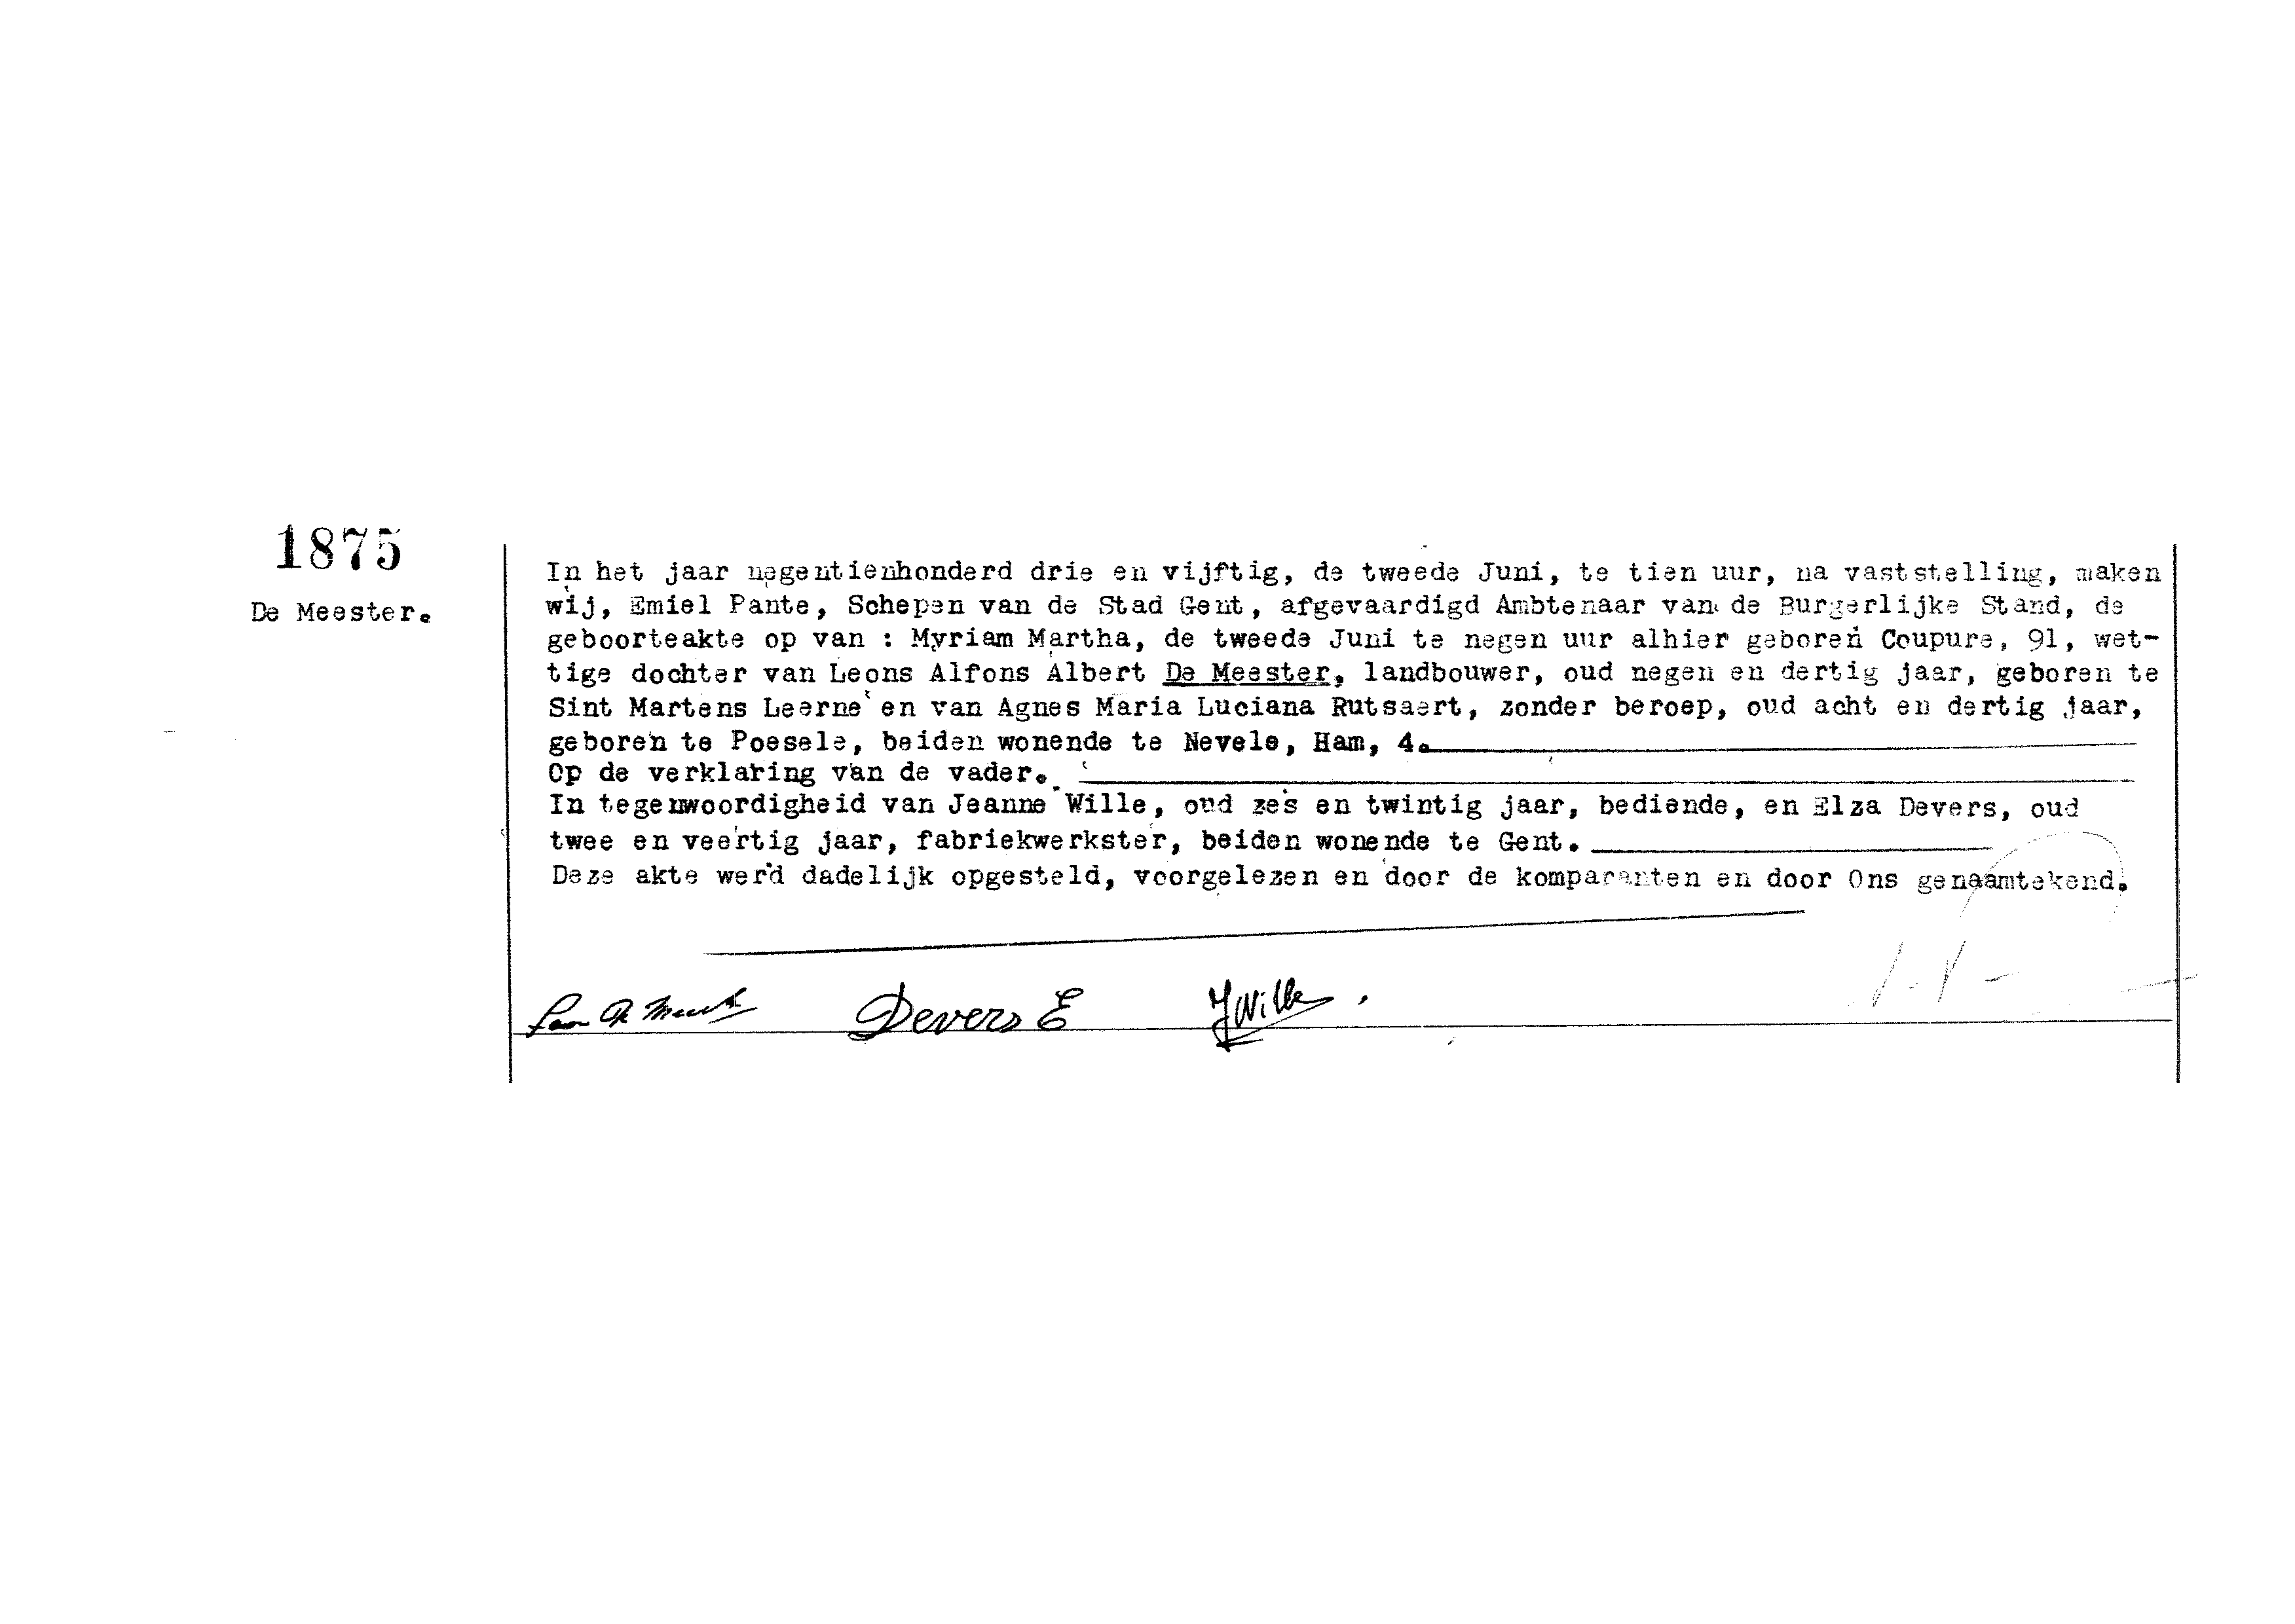 1875
De Meester.
In het jaar negentienhonderd drie en vijftig, de tweede Juni, te tien uur, na vaststelling, maken
wij, Emiel Pante, Schepen van de Stad Gent, afgevaardigd Ambtenaar van de Burgerlijke Stand, de
geboorteakte op van : Myriam Martha, de tweede Juni te negen uur alhier geboren Coupure, 91, wet-
tige dochter van Leons Alfons Albert De Meester, landbouwer, oud negen en dertig jaar, geboren te
Sint Martens Leerne en van Agnes Maria Luciana Rutsaert, zonder beroep, oud acht en dertig jaar,
geboren te Poesele, beiden wonende te Nevele, Ham, 4.
Op de verklaring van de vader.
In tegenwoordigheid van Jeanne Wille, oud zes en twintig jaar, bediende, en Elza Devers, oud
twee en veertig jaar, fabriekwerkster, beiden wonende te Gent.
Deze akte werd dadelijk opgesteld, voorgelezen en door de komparanten en door Ons genaamtekend.
Devers E JWille